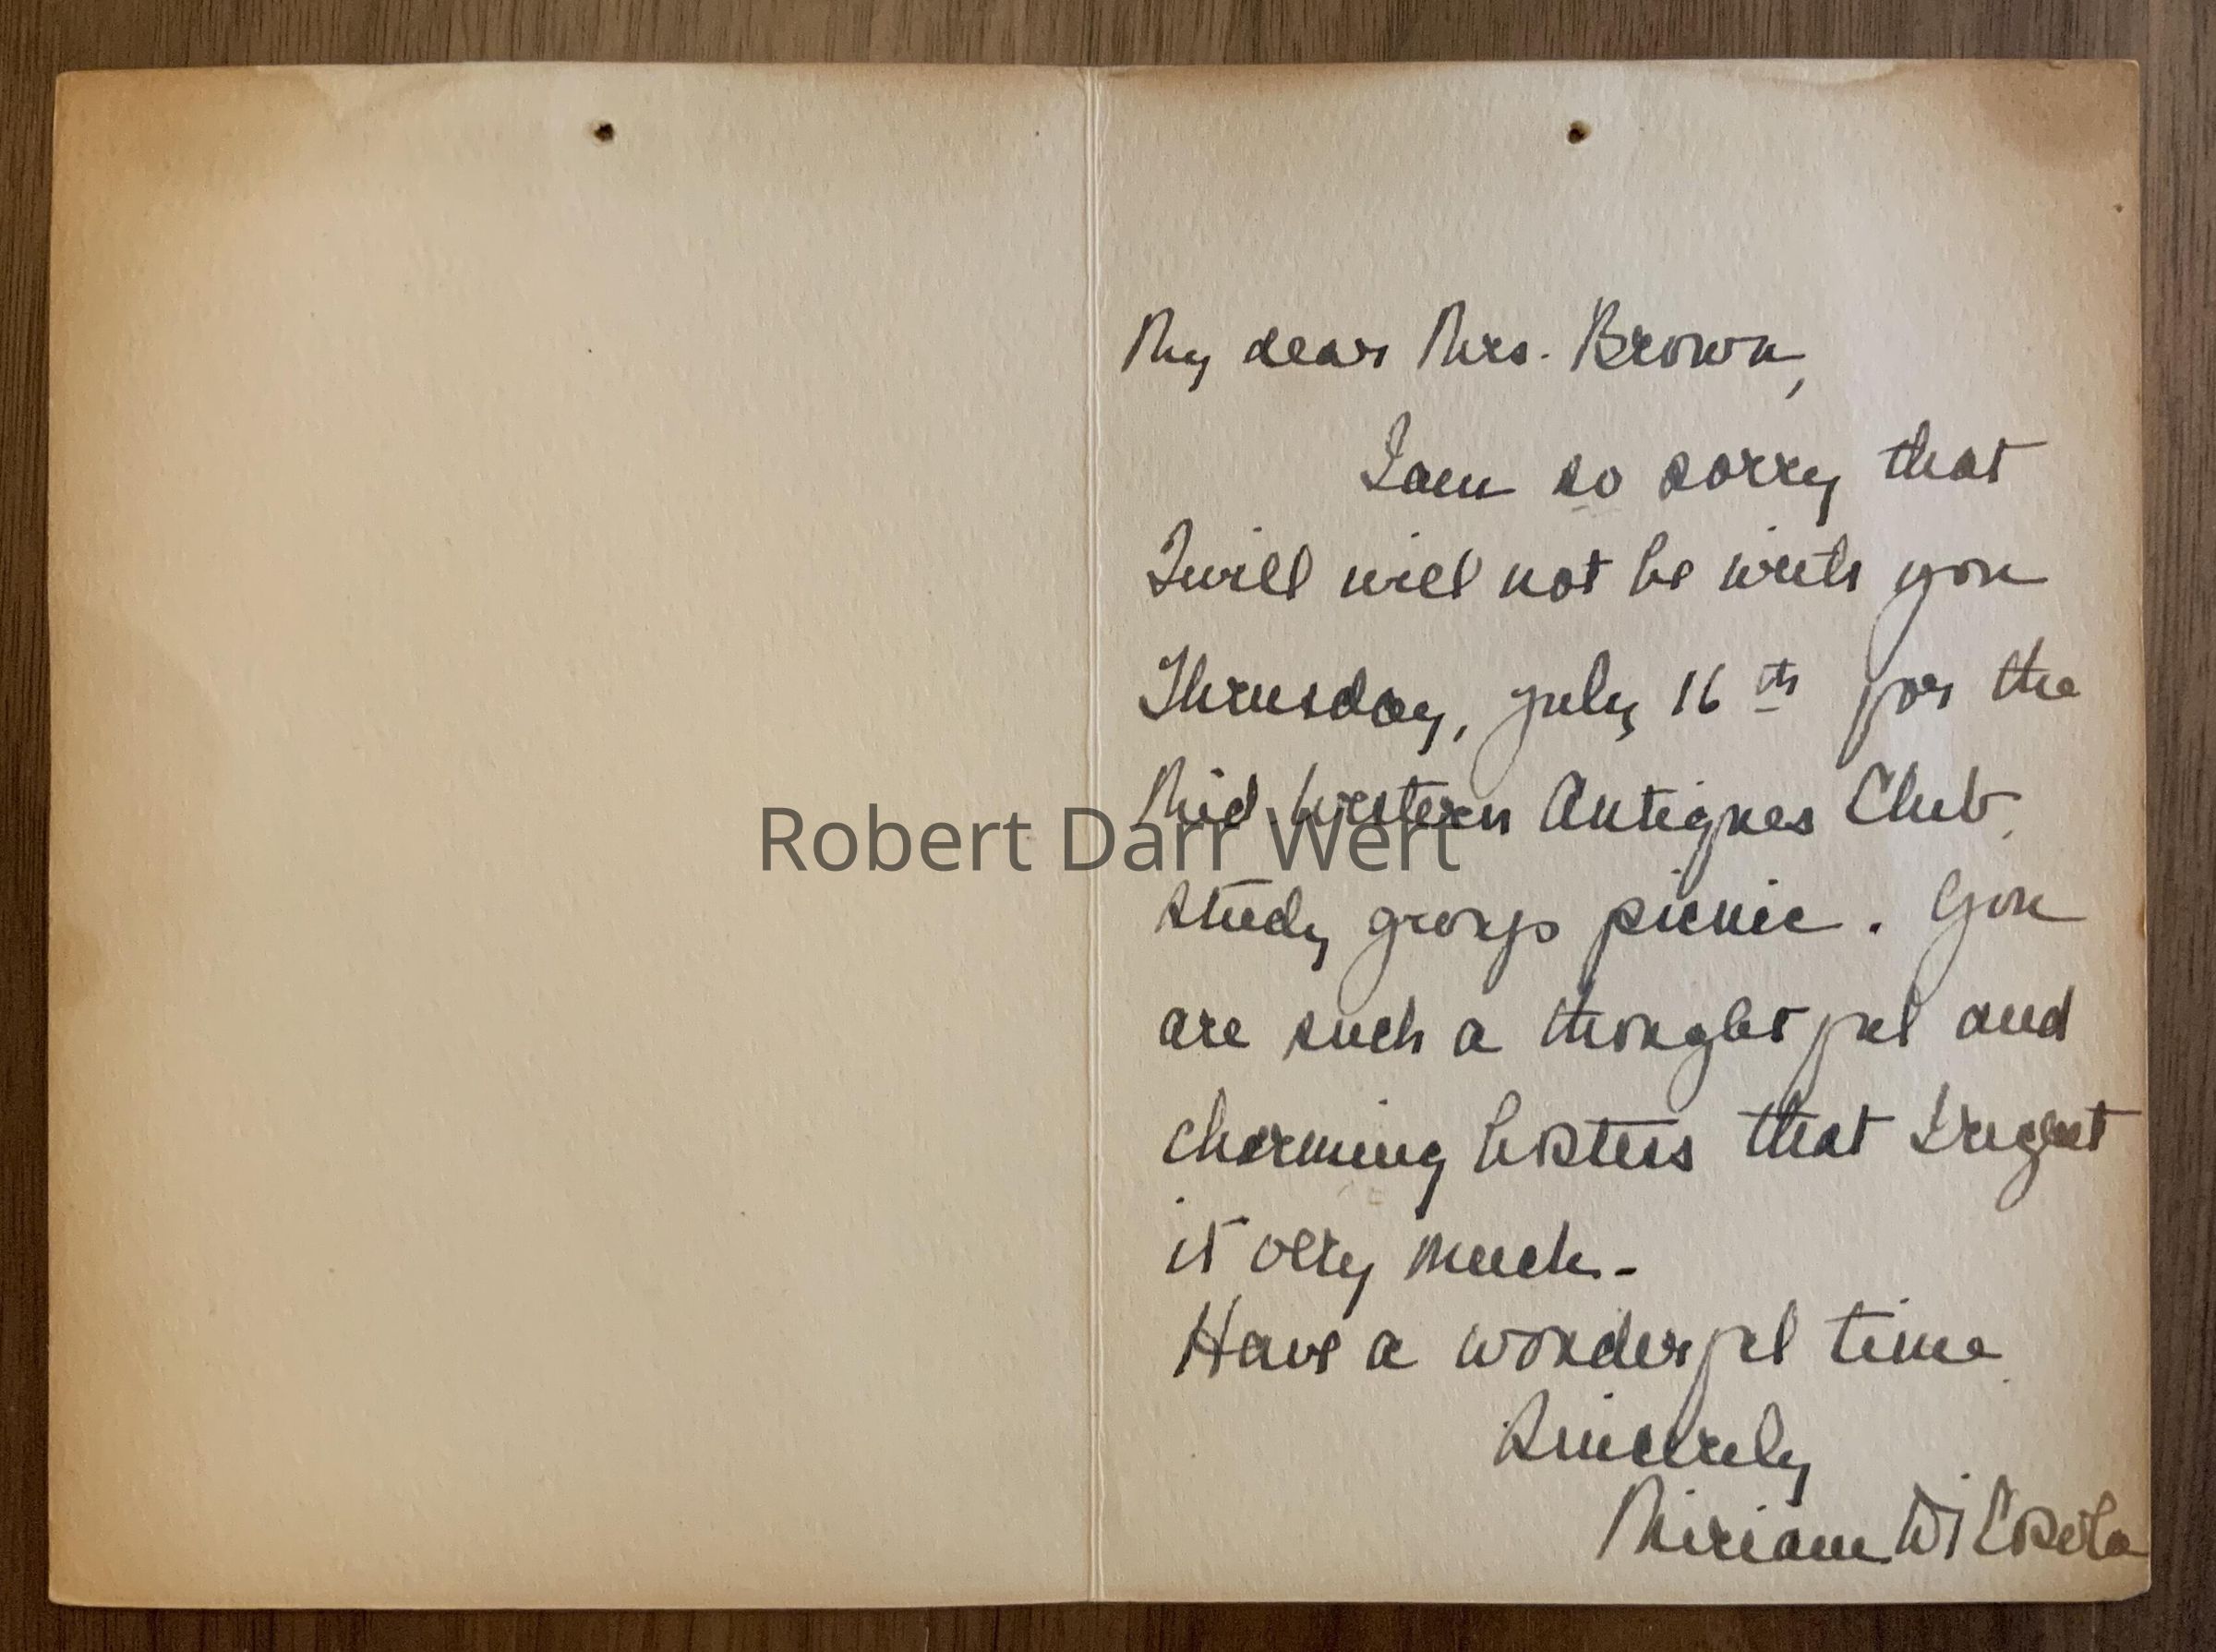 My dear Mrs. Brown,
I am so sorry that
I will will not be with you
Thursday, July 16th for the
Mid. Western Antiques Club.
Robert Darr Wert
study group picnic. You
are such a thoughtful and
charming hostess that I regret
it very much-
Have a wonderful time.
Sincerely
Miriam